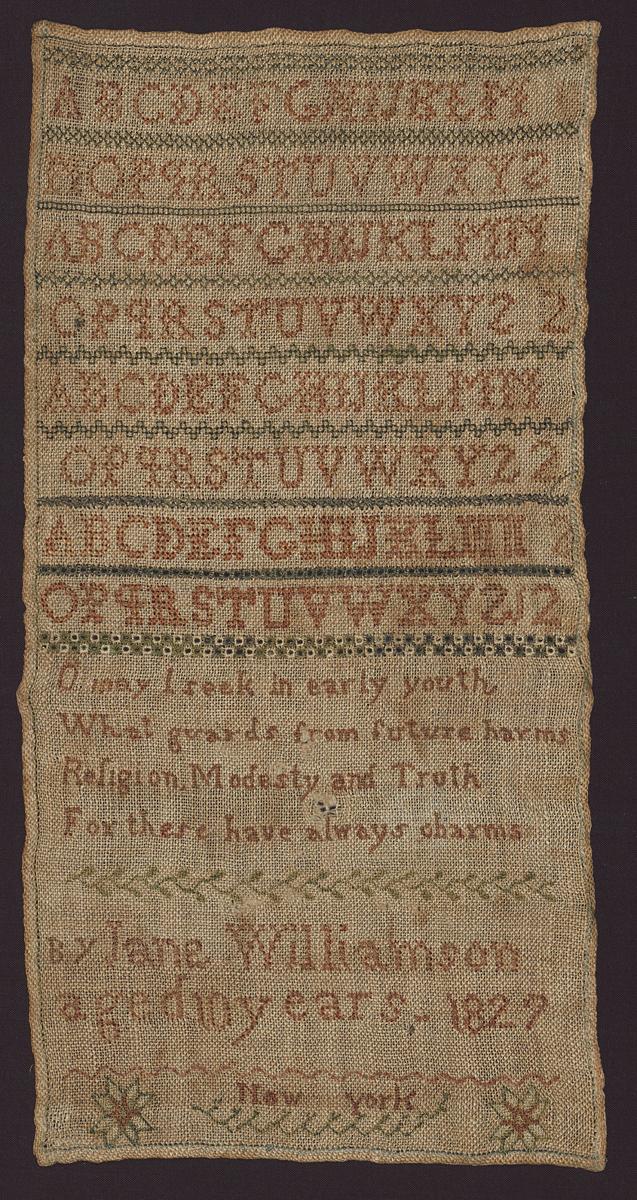 A B C D E F G H I J K L M
N O P q R S T U V W X Y Z
A B C D E F G H I J K L M N
O P q R S T U V W X Y Z Z
A B C D E F G H I J K L M N
O P q R S T U V W X Y Z Z
A B C D E F G H I J K L M N
O P q R S T U V W X Y Z Z
O may I seek in early youth
What guards from future harms
Religion, Modesty and Truth
For these have always charms
By Jane Williamson
aged 10 years - 1829
New york